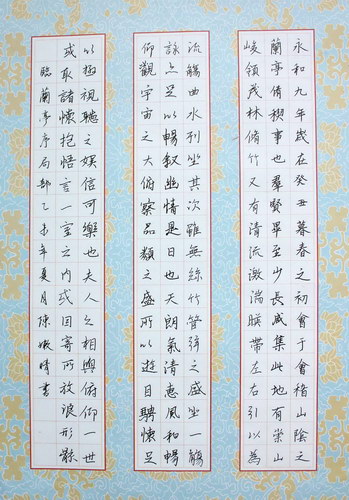 永和九年歲在癸丑暮春之初會于會稽山陰之
蘭亭脩禊事也羣賢畢至少長咸集此地有崇山
峻領茂林脩竹又有清流激湍暎帶左右引以為
流觴曲水列坐其次雖無絲竹管弦之盛坐一觴
詠亦足以暢叙幽情是日也天朗氣清惠風和暢
仰觀宇宙之大俯察品類之盛所以遊目騁懷足
以極視聽之娛信可樂也夫人之相與俯仰一世
或取諸懷抱悟言一室之內或因寄所放浪形骸
臨蘭亭序局部乙未年夏月陳晴書